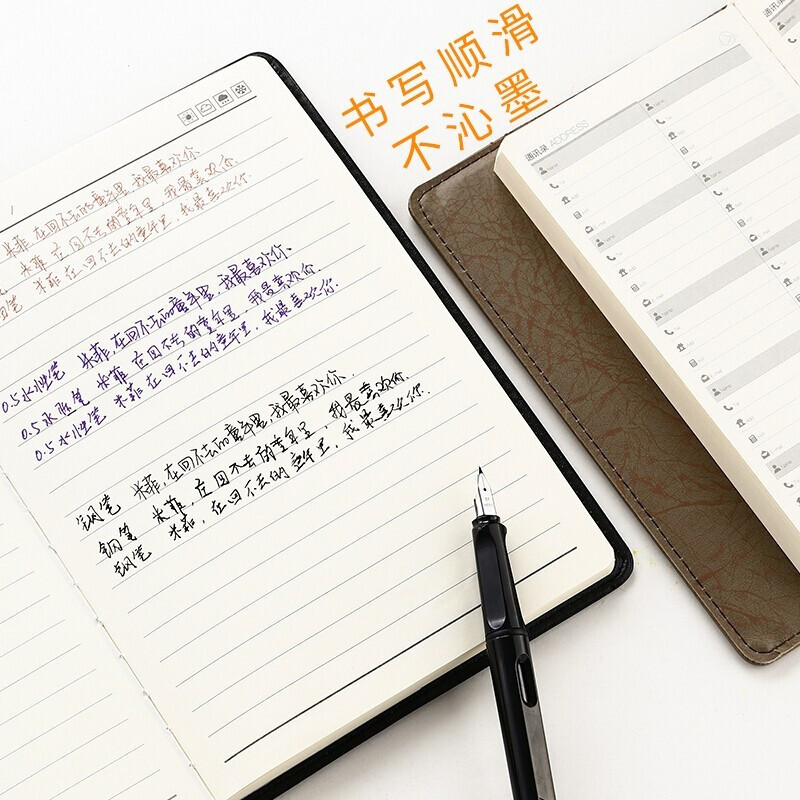 书写顺滑
不沁墨
米菲,在回不去的童年里,我最喜欢你.
米菲,在回不去的童年里,我最喜欢你.
笔 米菲 在回不去的童年里,我最喜欢你.
0.5水性笔 米菲,在回不去的童年里,我最喜欢你.
0.5水性笔 米菲,在回不去的童年里,我最喜欢你.
0.5水性笔 米菲 在回不去的童年里,我最喜欢你.
钢笔 米菲,在回不去的童年里,我最喜欢你.
钢笔 米菲,在回不去的童年里,我最喜欢你.
钢笔 米菲,在回不去的童年里,我最喜欢你.
通讯录 ADDRESS
通讯录